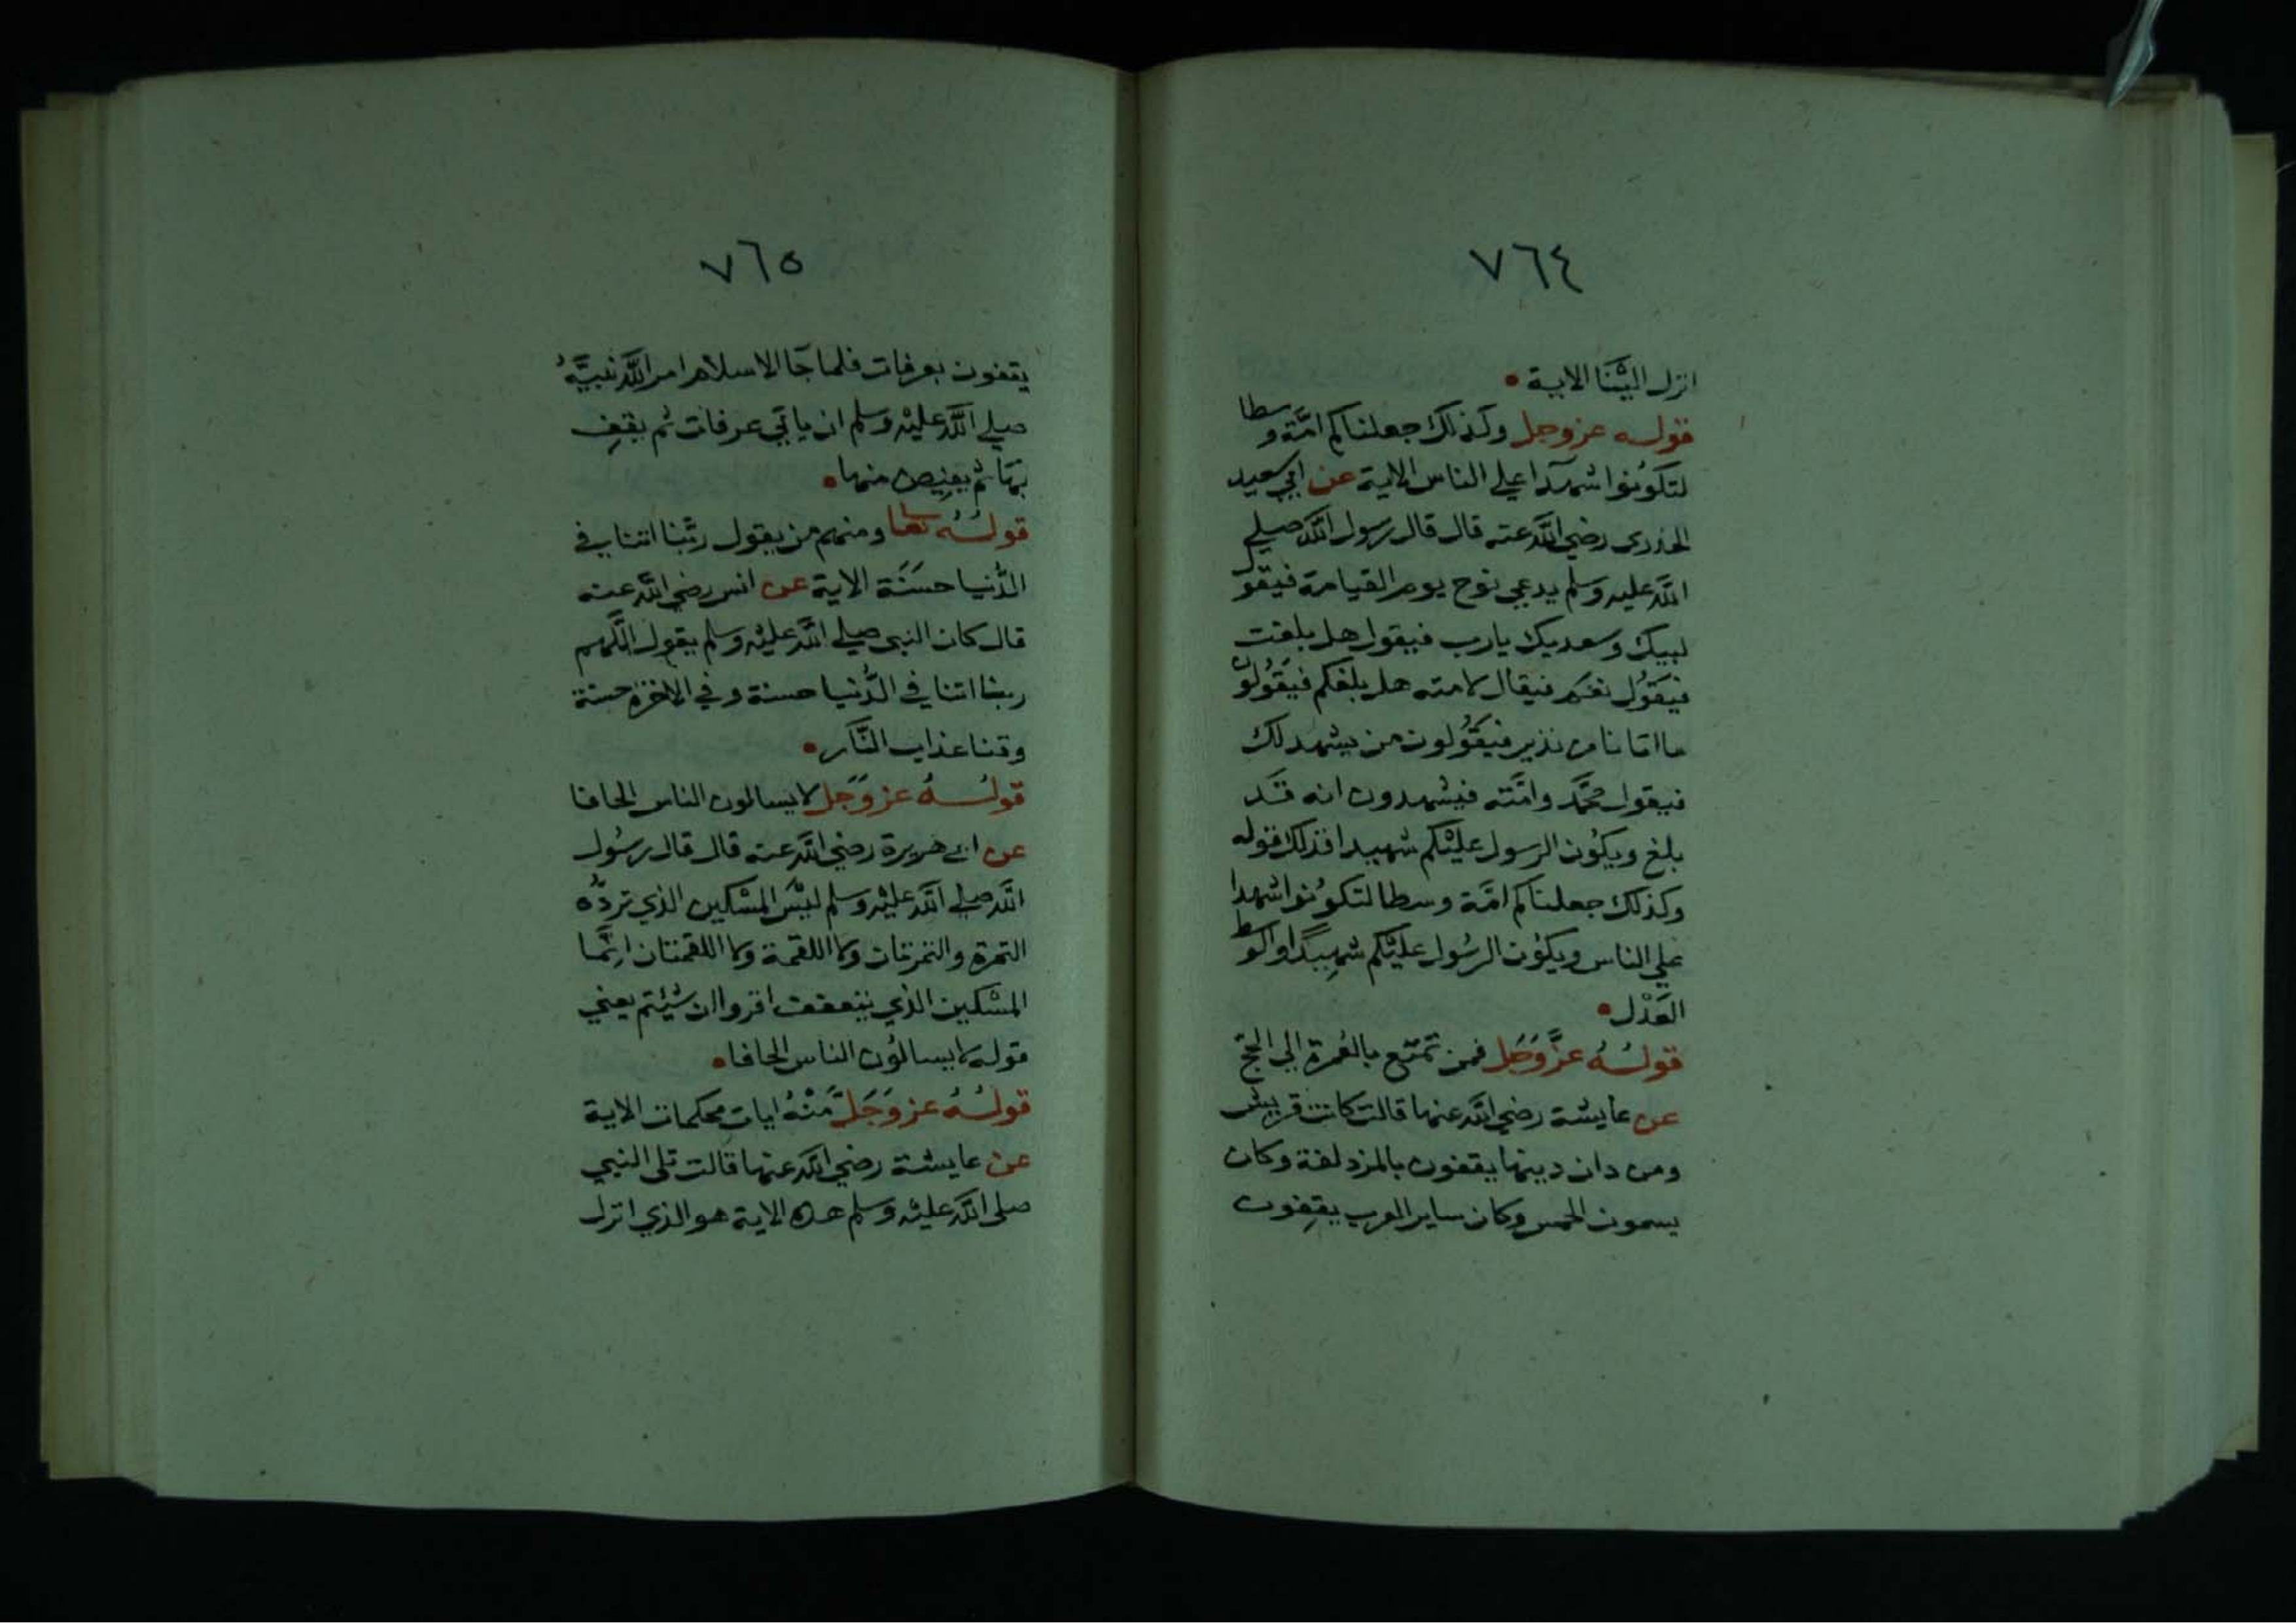 ٧٦٤
انزل الَيْنَا الاية
قولـه عز وجل وكذلك جعلناكم امَّة وسطا
لتكوُنوا شهدآ اعلي الناس الاية عن ابي سعيد
الخدرى رضي اللَّه عنه قال قال رسول اللَّه صلي
اللَّه عليه وسلم يدعي نوح يوم القيامة فيقول
لبيك وسعديك يارب فيقول هل بلغت
فيَقوُل نعَم فيقال لامته هل بلغكم فيَقوُلوُن
مااتانا من نذير فيَقوُلون من يشهد لك
فيقول محمَّد وامَّته فيشهدون انه قَد
بلغ ويكوُن الرسول علَيْكم شهيدا فذلك قوله
وكذلك جعلناكم امَّة وسطا لتكوُنوا شهدا
علي الناس ويكوُن الرسُول علَيْكم شهِيدًا والوسط
العَدْل
قولـُهُ عزَّ وَجَل فمن تمتّع بالعُمرة الي الحجّ
عن عايشة رضي اللَّه عنها قالت كانت قريش
ومن دان دينها يقفون بالمزدلفة وكان
يسمون الحمس وكان ساير العرب يقِفون
٧٦٥
يقفون بعرفات فلما جَا الاسلام امر اللَّه نَبيَّهُ
صلي اللَّه عليْه وَسلم ان ياتي عرفات ثم يقِف
بهَا ثم يفيِض منها
قولـُهُ تعا ومنهم من يقول ربَّنا اتنا في
الدُّنيا حسَنَة الاية عن انس رضي اللَّه عنه
قال كان النبي صلي اللَّه عليْه وسلم يقول اللَّهم
ربنا اتنا في الدُّنيا حسنة وفي الاخرة حسنة
وقنا عذاب النَّار
قولـُهُ عز وَجَل لايسالون الناس الحافا
عن ابي هريرة رضي اللَّه عنه قال قال رسُول
اللَّه صلي اللَّه عليْه وسلم ليْسَ المسْكين الذي تردُّه
التمرة والتمرتان ولا اللقمة ولا اللقمتان اِنَّما
المسْكين الذي يتعفف اقروا ان شيْتم يعني
قوله لايسالوُن الناس الحافا
قولـُهُ عز وَجَلَّ مِنْهُ ايات محكمات الاية
عن عايشة رضي اللَّه عنها قالت تلى النبي
صلى اللَّه عليْه وسلم هذه الاية هو الذي انزل